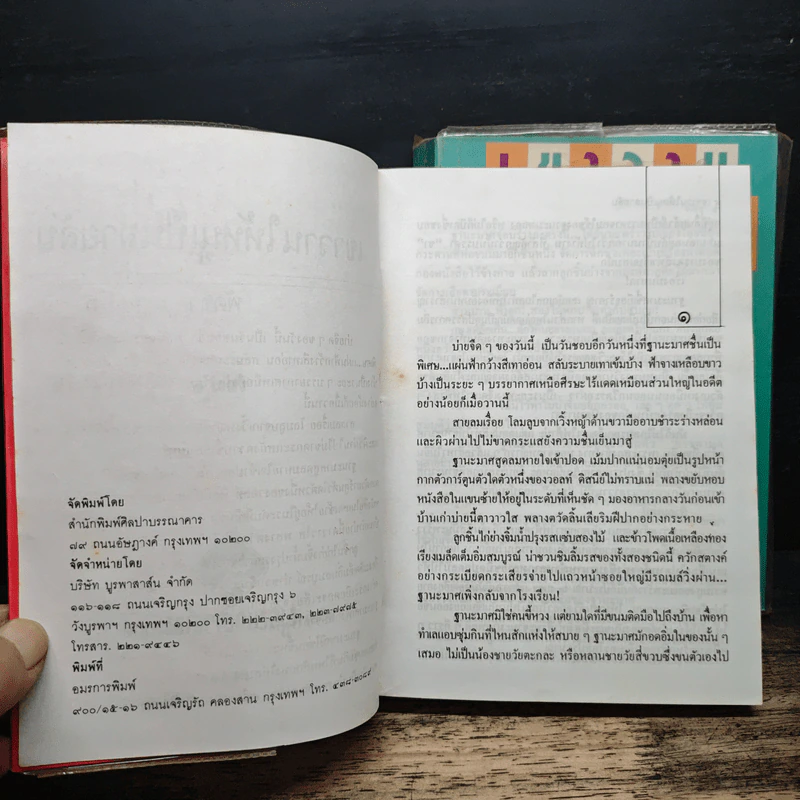 จัดพิมพ์โดย
สำนักพิมพ์ศิลปาบรรณาคาร
๗๙ ถนนอัษฎางค์ กรุงเทพฯ ๑๐๒๐๐
จัดจำหน่ายโดย
บริษัท บูรพาสาส์น จำกัด
๑๑๖-๑๑๘ ถนนเจริญกรุง ปากซอยเจริญกรุง ๖
วังบูรพาฯ กรุงเทพฯ ๑๐๒๐๐ โทร. ๒๒๒-๓๙๔๓, ๒๒๓-๗๙๘๕
โทรสาร. ๒๒๑-๙๔๔๖
พิมพ์ที่
อมรการพิมพ์
๙๐๐/๑๕-๑๖ ถนนเจริญรัถ คลองสาน กรุงเทพฯ โทร. ๔๓๘-๓๐๘๙
๑
บ่ายจืด ๆ ของวันนี้ เป็นวันชอบอีกวันหนึ่งที่ฐานะมาศชื่นเป็น
พิเศษ...แผ่นฟ้ากว้างสีเทาอ่อน สลับระบายเทาเข้มบ้าง ฟ้าจางเหลือบขาว
บ้างเป็นระยะ ๆ บรรยากาศเหนือศีรษะไร้แดดเหมือนส่วนใหญ่ในอดีต
อย่างน้อยก็เมื่อวานนี้
สายลมเรื่อย โลมลูบจากเวิ้งหญ้าด้านขวามืออาบชำระร่างหล่อน
และผิวผ่านไปไม่ขาดกระแสยังความชื่นเย็นมาสู่
ฐานะมาศสูดลมหายใจเข้าปอด เม้มปากแน่นอมตุ่ยเป็นรูปหน้า
กากตัวการ์ตูนตัวใดตัวหนึ่งของวอลท์ ดิสนีย์ไม่ทราบแน่ พลางขยับหอบ
หนังสือในแขนซ้ายให้อยู่ในระดับที่เห็นชัด ๆ มองอาหารกลางวันก่อนเข้า
บ้านเก่าบ่ายนี้ตาวาวใส พลางตวัดลิ้นเลียริมฝีปากอย่างกระหาย
ลูกชิ้นไก่ย่างจิ้มน้ำปรุงรสแซ่บสองไม้ และข้าวโพดเนื้อเหลืองทอง
เรียงเมล็ดเต็มอิ่มสมบูรณ์ น่าชวนชิมลิ้มรสของทั้งสองชนิดนี้ ควักสตางค์
อย่างกระเบียดกระเสียรจ่ายไปแถวหน้าซอยใหญ่มีรถเมล์วิ่งผ่าน...
ฐานะมาศเพิ่งกลับจากโรงเรียน!
ฐานะมาศมิใช่คนขี้หวง แต่ยามใดที่มีขนมติดมือไปถึงบ้าน เพื่อหา
ทำเลแอบซุ่มกินที่ไหนสักแห่งให้สบาย ๆ ฐานะมาศมักอดอิ่มในของนั้น ๆ
เสมอ ไม่เป็นน้องชายวัยตะกละ หรือหลานชายวัยสี่ขวบซึ่งขนตัวเองไป